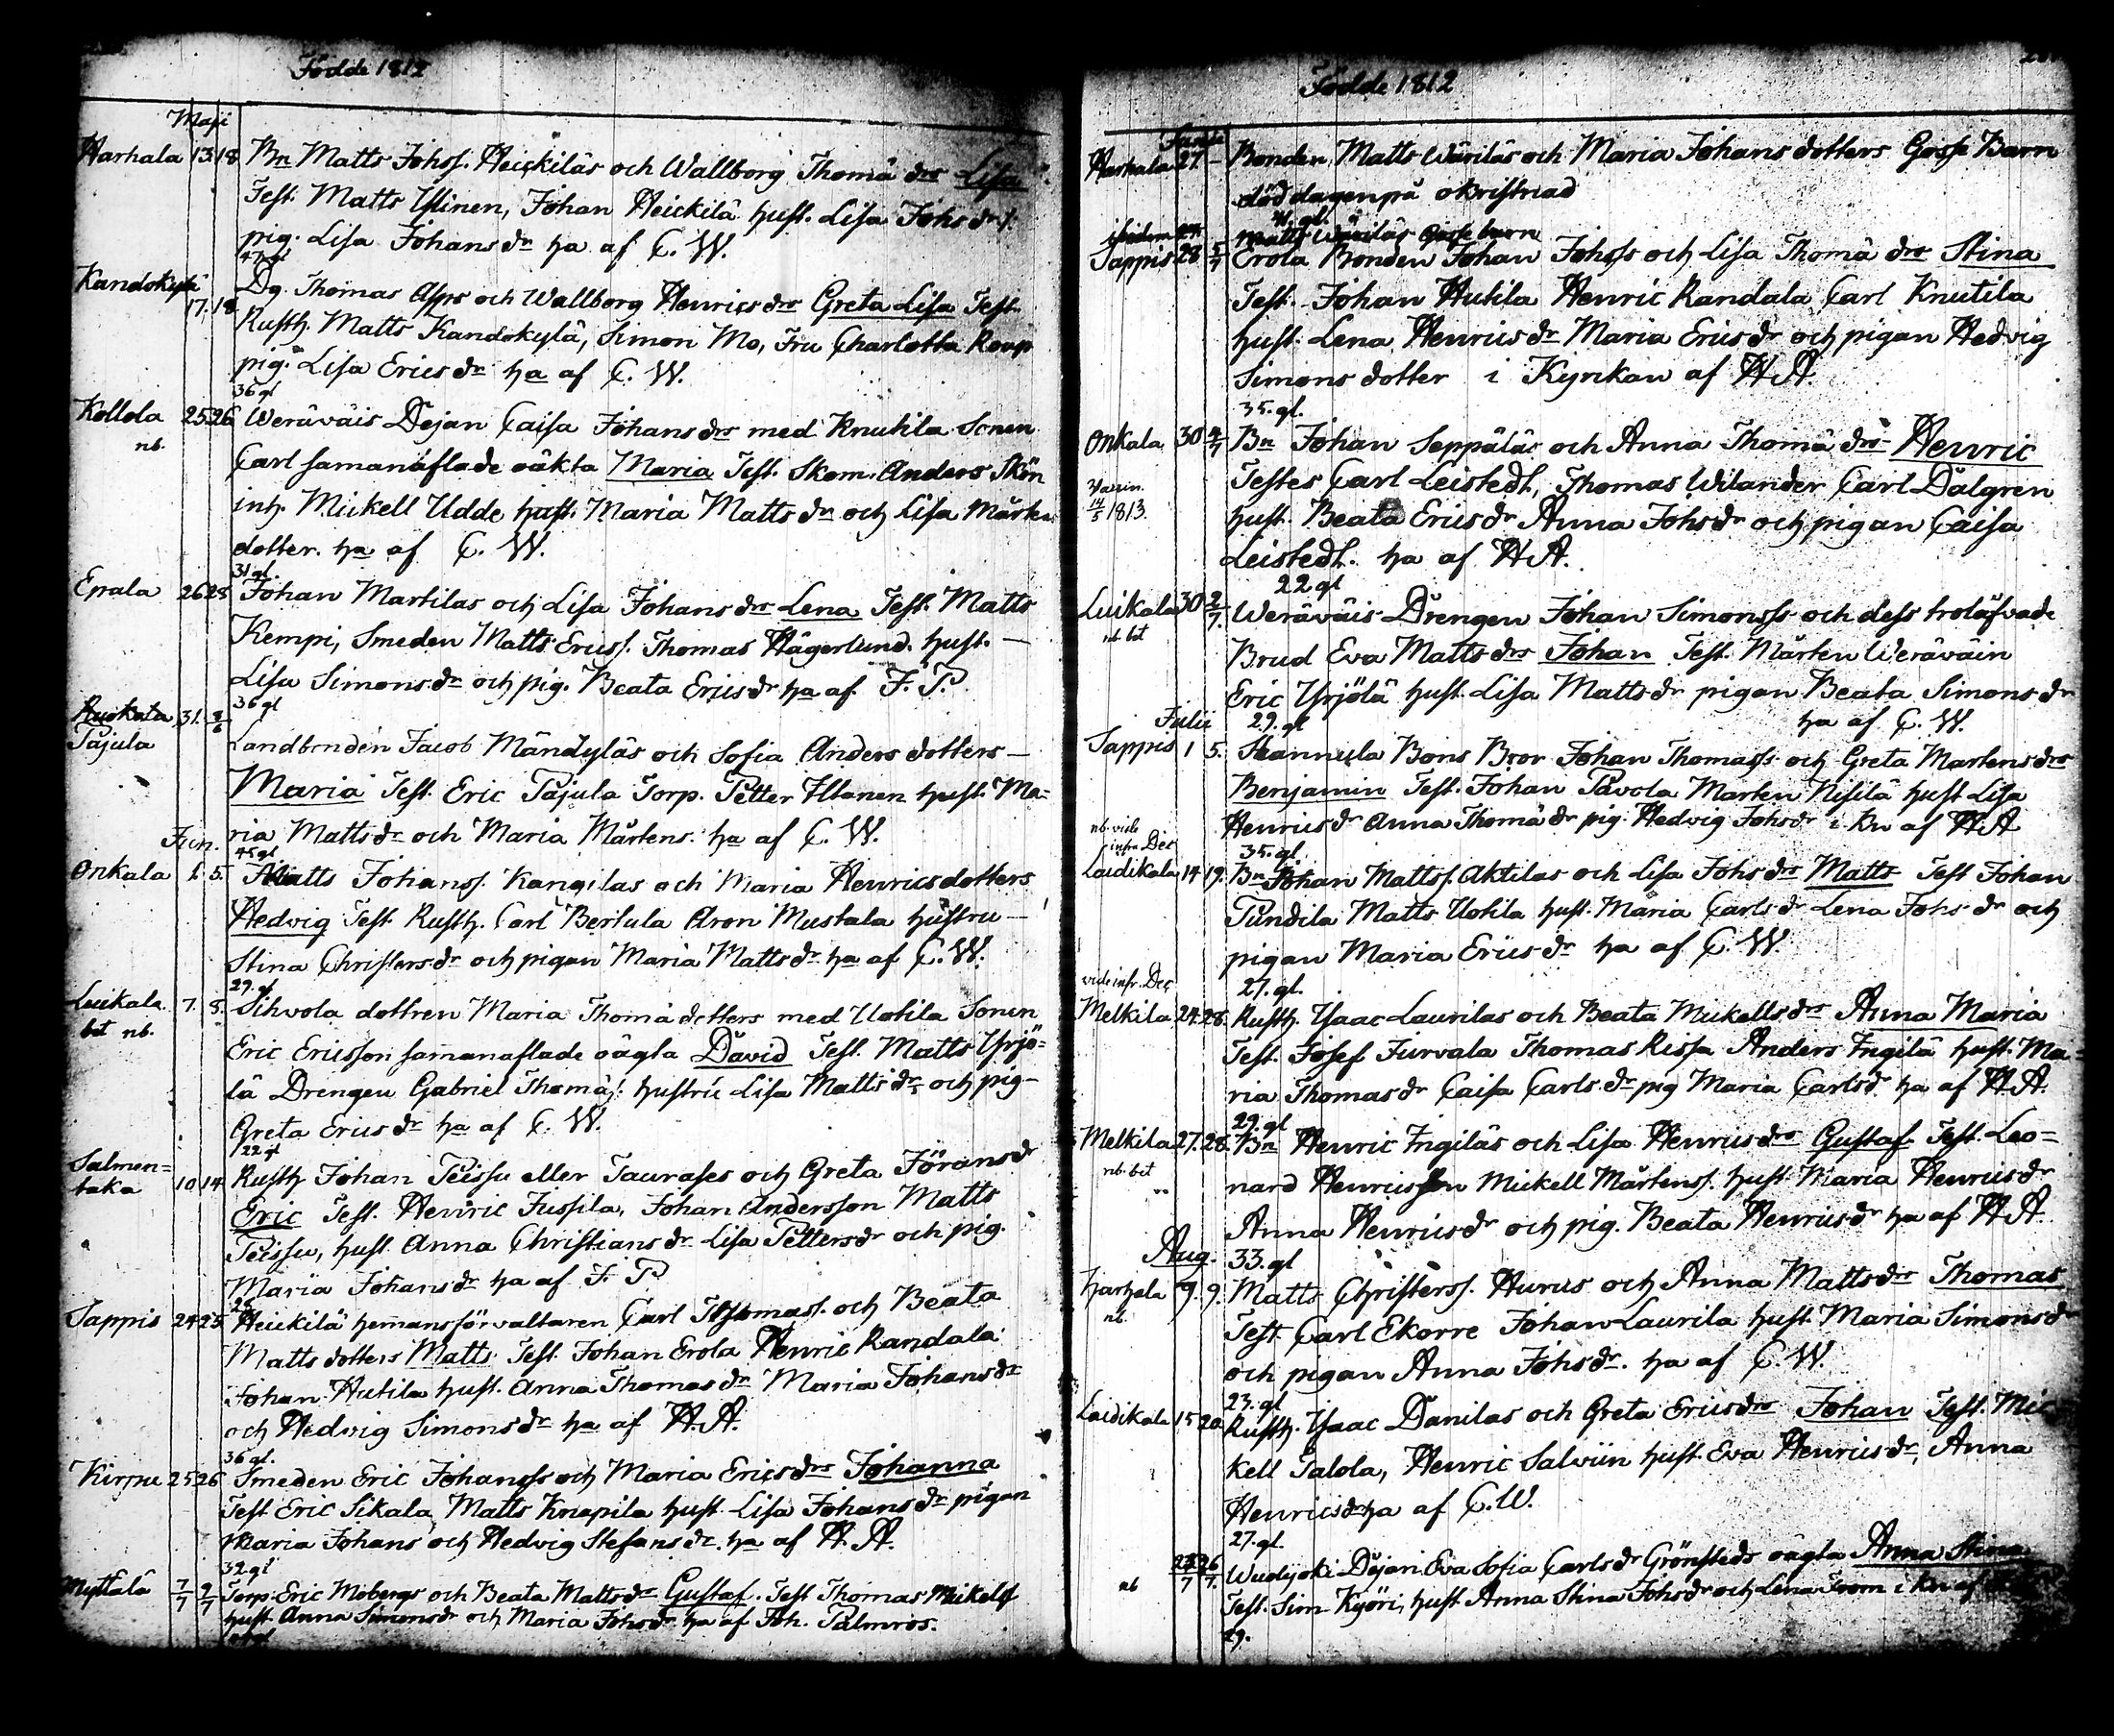 Födde 1812
Maji
Harhala 13. 18 Bn Matts Johss. Heickiläs och Wallborg Thomä drs Lisa
Test. Matts Yllinen, Johan Heickilä hust. Lisa Johsdr
pig. Lisa Johansdr ha af C. W.
47 gl
Kandokylä 17. 18 Dg. Thomas Asps och Wallborg Henricsdrs Greta Lisa Test.
Rusth. Matts Kandokylä, Simon Mo, Fru Charlotta Roup
pig. Lisa Ericsdr ha af C. W.
36 gl
Kollola 25 26 Weräväis Dejan Caisa Johansdrs med Knutila Sonen
nb. Carl samanaflade oäkta Maria Test. Skom. Anders Skön
inh. Mickell Udde hust. Maria Mattsdr och Lisa Mårtens
dotter. ha af C. W.
31 gl.
Epala 26 28 Johan Martilas och Lisa Johansdrs Lena Test. Matts
Kempi, Smeden Matts Ericss. Thomas Hägerlund. hust. —
Lisa Simonsdr och pig. Beata Ericsdr ha af F. P.
36 gl
Ruokala 31. 2/6
Pajula Landbonden Jacob Mändyläs och Sofia Anders dotters —
Maria Test. Eric Pajula Torp. Petter Yllanen hust. Ma=
ria Mattsdr och Maria Mårtens. ha af C. W.
Jun. 45 gl
Onkala 1. 5. Matts Johanss. Kangilas och Maria Henricsdotters
Hedvig Test. Rusth. Carl Bertula Aron Mustala hustru —
Stina Christersdr och pigan Maria Mattsdr ha af C. W.
29. gl
Luikala 7. 8. Sihvola dottren Maria Thomä dotters med Uotila Sonen
bet nb. Eric Ericsson samanaflade oägta David Test. Matts Yrjö=
lä Drengen Gabriel Thomäs. hustru Lisa Mattsdr och pig—
Greta Ericsdr ha af C. W.
22 gl
Salmen=
taka 10 14 Rusth Johan Peissu eller Taurases och Greta Jöransdr
Eric Test. Henric Jussila, Johan Andersson Matts
Peissu, hust Anna Christiansdr Lisa Pettersdr och pig.
Maria Johansdr ha af F. P
25
Sappis 24 25 Heickilä hemansförvaltaren Carl Thomass. och Beata
Matts dotters Matts Test. Johan Erola Henric Randala
Johan Hutila hust. Anna Thomasdr Maria Johansdr
och Hedvig Simonsdr ha af H. A.
36 gl.
Kirpu 25 26 Smeden Eric Johanss och Maria Ericsdrs Johanna
Test Eric Sikala Matts Knapila hust Lisa Johansdr pigan
Maria Johans och Hedvig Stefansdr. ha af H. A.
32 gl
Myttälä 7/7 9/7 Torp. Eric Mobergs och Beata Mattsdr Gustaf. Test Thomas Mickels
hust Anna Simonsdr och Maria Johsdr ha af Joh. Palmros.
Födde 1812
Junii
Harhala 27. — Bonden Matts Wäriläs och Maria Johans dotters Gosse Barn
död dagen på okristnad
Matts Wäriläs Gosse barn
Sappis 28 5/7 Erola Bonden Johan Johss och Lisa Thomä drs Stina
Test. Johan Hutila Henric Randala Carl Knutila
hust. Lena Henricsdr Maria Ericsdr och pigan Hedvig
Simons dotter i Kyrkan af H A.
35. gl.
Onkala 30 4/7 Bn Johan Seppäläs och Anna Thomä drs Henric
Vaccin. Testes Carl Leistedt, Thomas Wilander Carl Dalgren
14/5 1813. hust. Beata Ericsdr Anna Johsdr och pigan Caisa
Leistedt. ha af H A.
22 gl
Luikala 30 2/7. Weräväis Drengen Johan Simonss och dess trolåfvade
nb bet Brud Eva Mattsdrs Johan Test. Mårten Weräväin
Eric Yrjölä hust. Lisa Mattsdr pigan Beata Simonsdr
Julii 29. gl ha af C. W.
Sappis 1 5. Hannula Bons Bror Johan Thomass och Greta Martensdrs
Benjamin Test. Johan Pavola Marten Nisilä hust Lisa
Henricsdr Anna Thomä dr pig. Hedvig Johsdr i kn af H. A
nb. vide
infra Dec 35. gl.
Laidikala 14 19. Bn Johan Mattss. Aktilas och Lisa Johsdrs Matts Test Johan
Pundila Matts Uotila hust. Maria Carlsdr Lena Johsdr och
pigan Maria Ericsdr ha af C. W.
vide infr. Dec 27. gl.
Melkila 24. 28. Rusth. Ysaac Laurilas och Beata Mickellsdrs Anna Maria
Test. Josef Jurvala Thomas Rissa Anders Ingilä hust. Ma=
ria Thomasdr Caisa Carlsdr pig Maria Carlsdr ha af H. A.
29. gl
Melkila 27. 28. Bn Henric Ingiläs och Lisa Henricsdrs Gustaf Test. Leo=
nb. bet nard Henricsson Mickell Mårtens. hust. Maria Henricsdr
Anna Henricsdr och pig. Beata Henricsdr ha af H A.
Aug. 33. gl
Harhala 9. 9. Matts Christerss. Hurus och Anna Mattsdrs Thomas
nb. Test. Carl Ekorre Johan Laurila hust. Maria Simonsdr
och pigan Anna Johsdr. ha af C. W.
23. gl
Laidikala 15 20. Rusth. Ysaac Danilas och Greta Ericsdrs Johan Test. Mic
kell Talola, Henric Salviin hust. Eva Henricsdr, Anna
Henricsdr ha af C. W.
27. gl.
26/7. Wudjoki Dejan Eva Sofia Carlsdr Grönsteds oägta Anna Stina
nb Test. Sim Kyöri, hust Anna Stina Johsdr och Lena From i kn af
29.